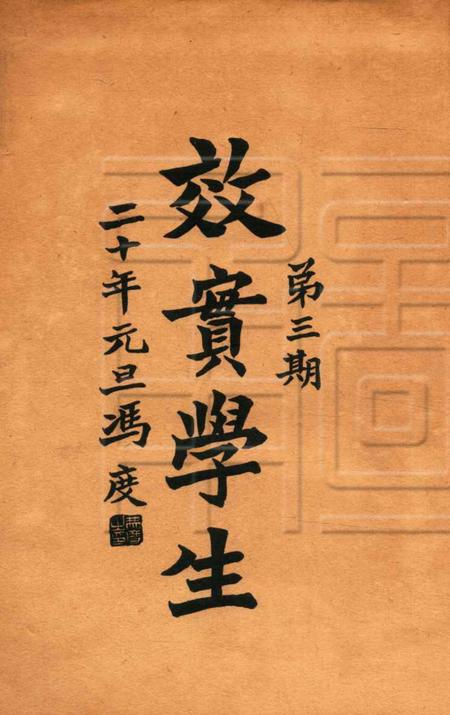 第三期
效實學生
二十年元旦馮度